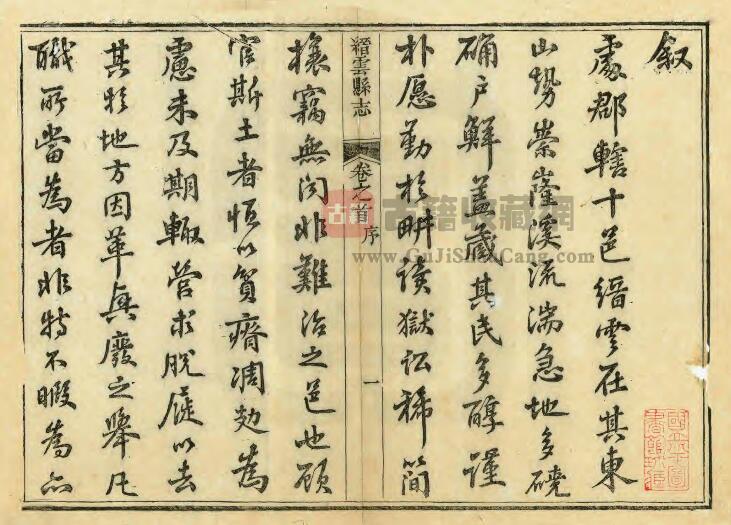 叙
處郡轄十邑縉雲在其東
山勢崇嶐溪流湍急地多磽
确户鮮盖藏其民多醇謹
朴愿勤於畊读獄訟稀簡
縉雲縣志
卷之首
序
一
攘竊無闻非難治之邑也顧
官斯土者恒以貧瘠凋劾為
慮未及期輙營求脱屣以去
其於地方因革興廢之舉凡
職所當為者非特不暇為亦
古籍
古籍收藏網
www.GuJiShouCang.com